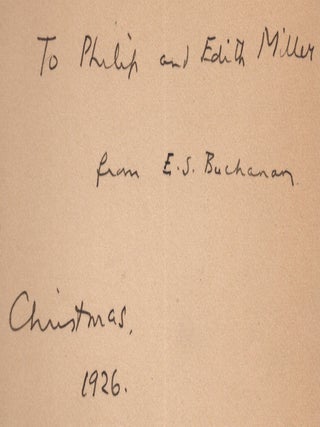 To Philip and Edith Miller
from E.S. Buchanan
Christmas,
1926.